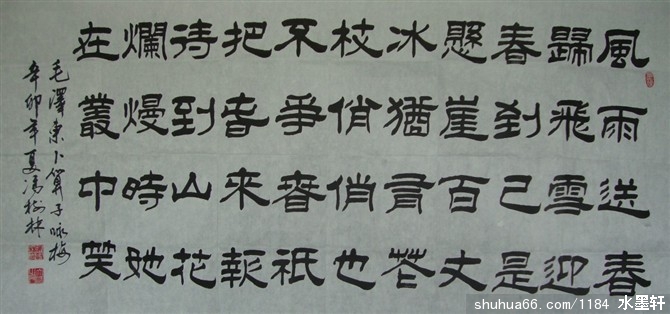 風雨送春
歸飛雪迎
春到已是
懸崖百丈
冰猶有花
枝俏俏也
不爭春祇
把春來報
待到山花
爛熳時她
在叢中笑
毛澤東卜算子咏梅
辛卯年夏馮树林
shuhua66.com/1184 水墨轩